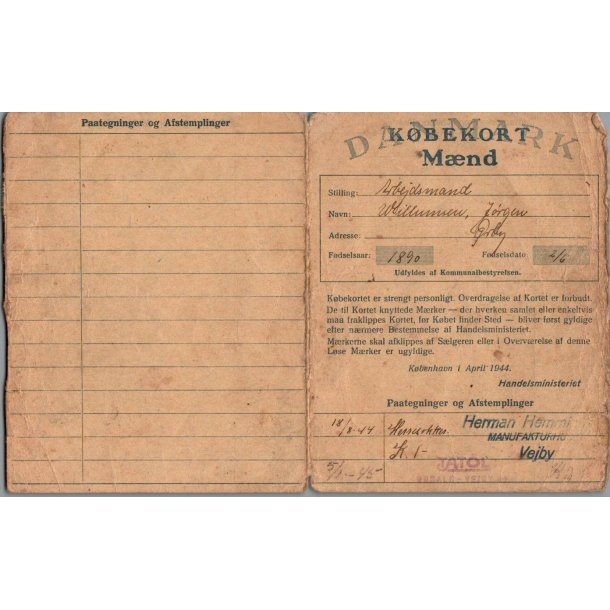 Paategninger og Afstemplinger
DANMARK
KØBEKORT
Mænd
Stilling: Arbejdsmand
Navn: Willumsen, Jørgen
Adresse: Ørby
Fødselsaar: 1890 Fødselsdato 2/6
Udfyldes af Kommunalbestyrelsen.
Købekortet er strengt personligt. Overdragelse af Kortet er forbudt.
De til Kortet knyttede Mærker — der hverken samlet eller enkeltvis
maa fraklippes Kortet, før Købet finder Sted — bliver først gyldige
efter nærmere Bestemmelse af Handelsministeriet.
Mærkerne skal afklippes af Sælgeren eller i Overværelse af denne
Løse Mærker er ugyldige.
København i April 1944.
Handelsministeriet
Paategninger og Afstemplinger
18/8-44 Herman
MANUFAKTUR
K. 1- Vejby
TATOL